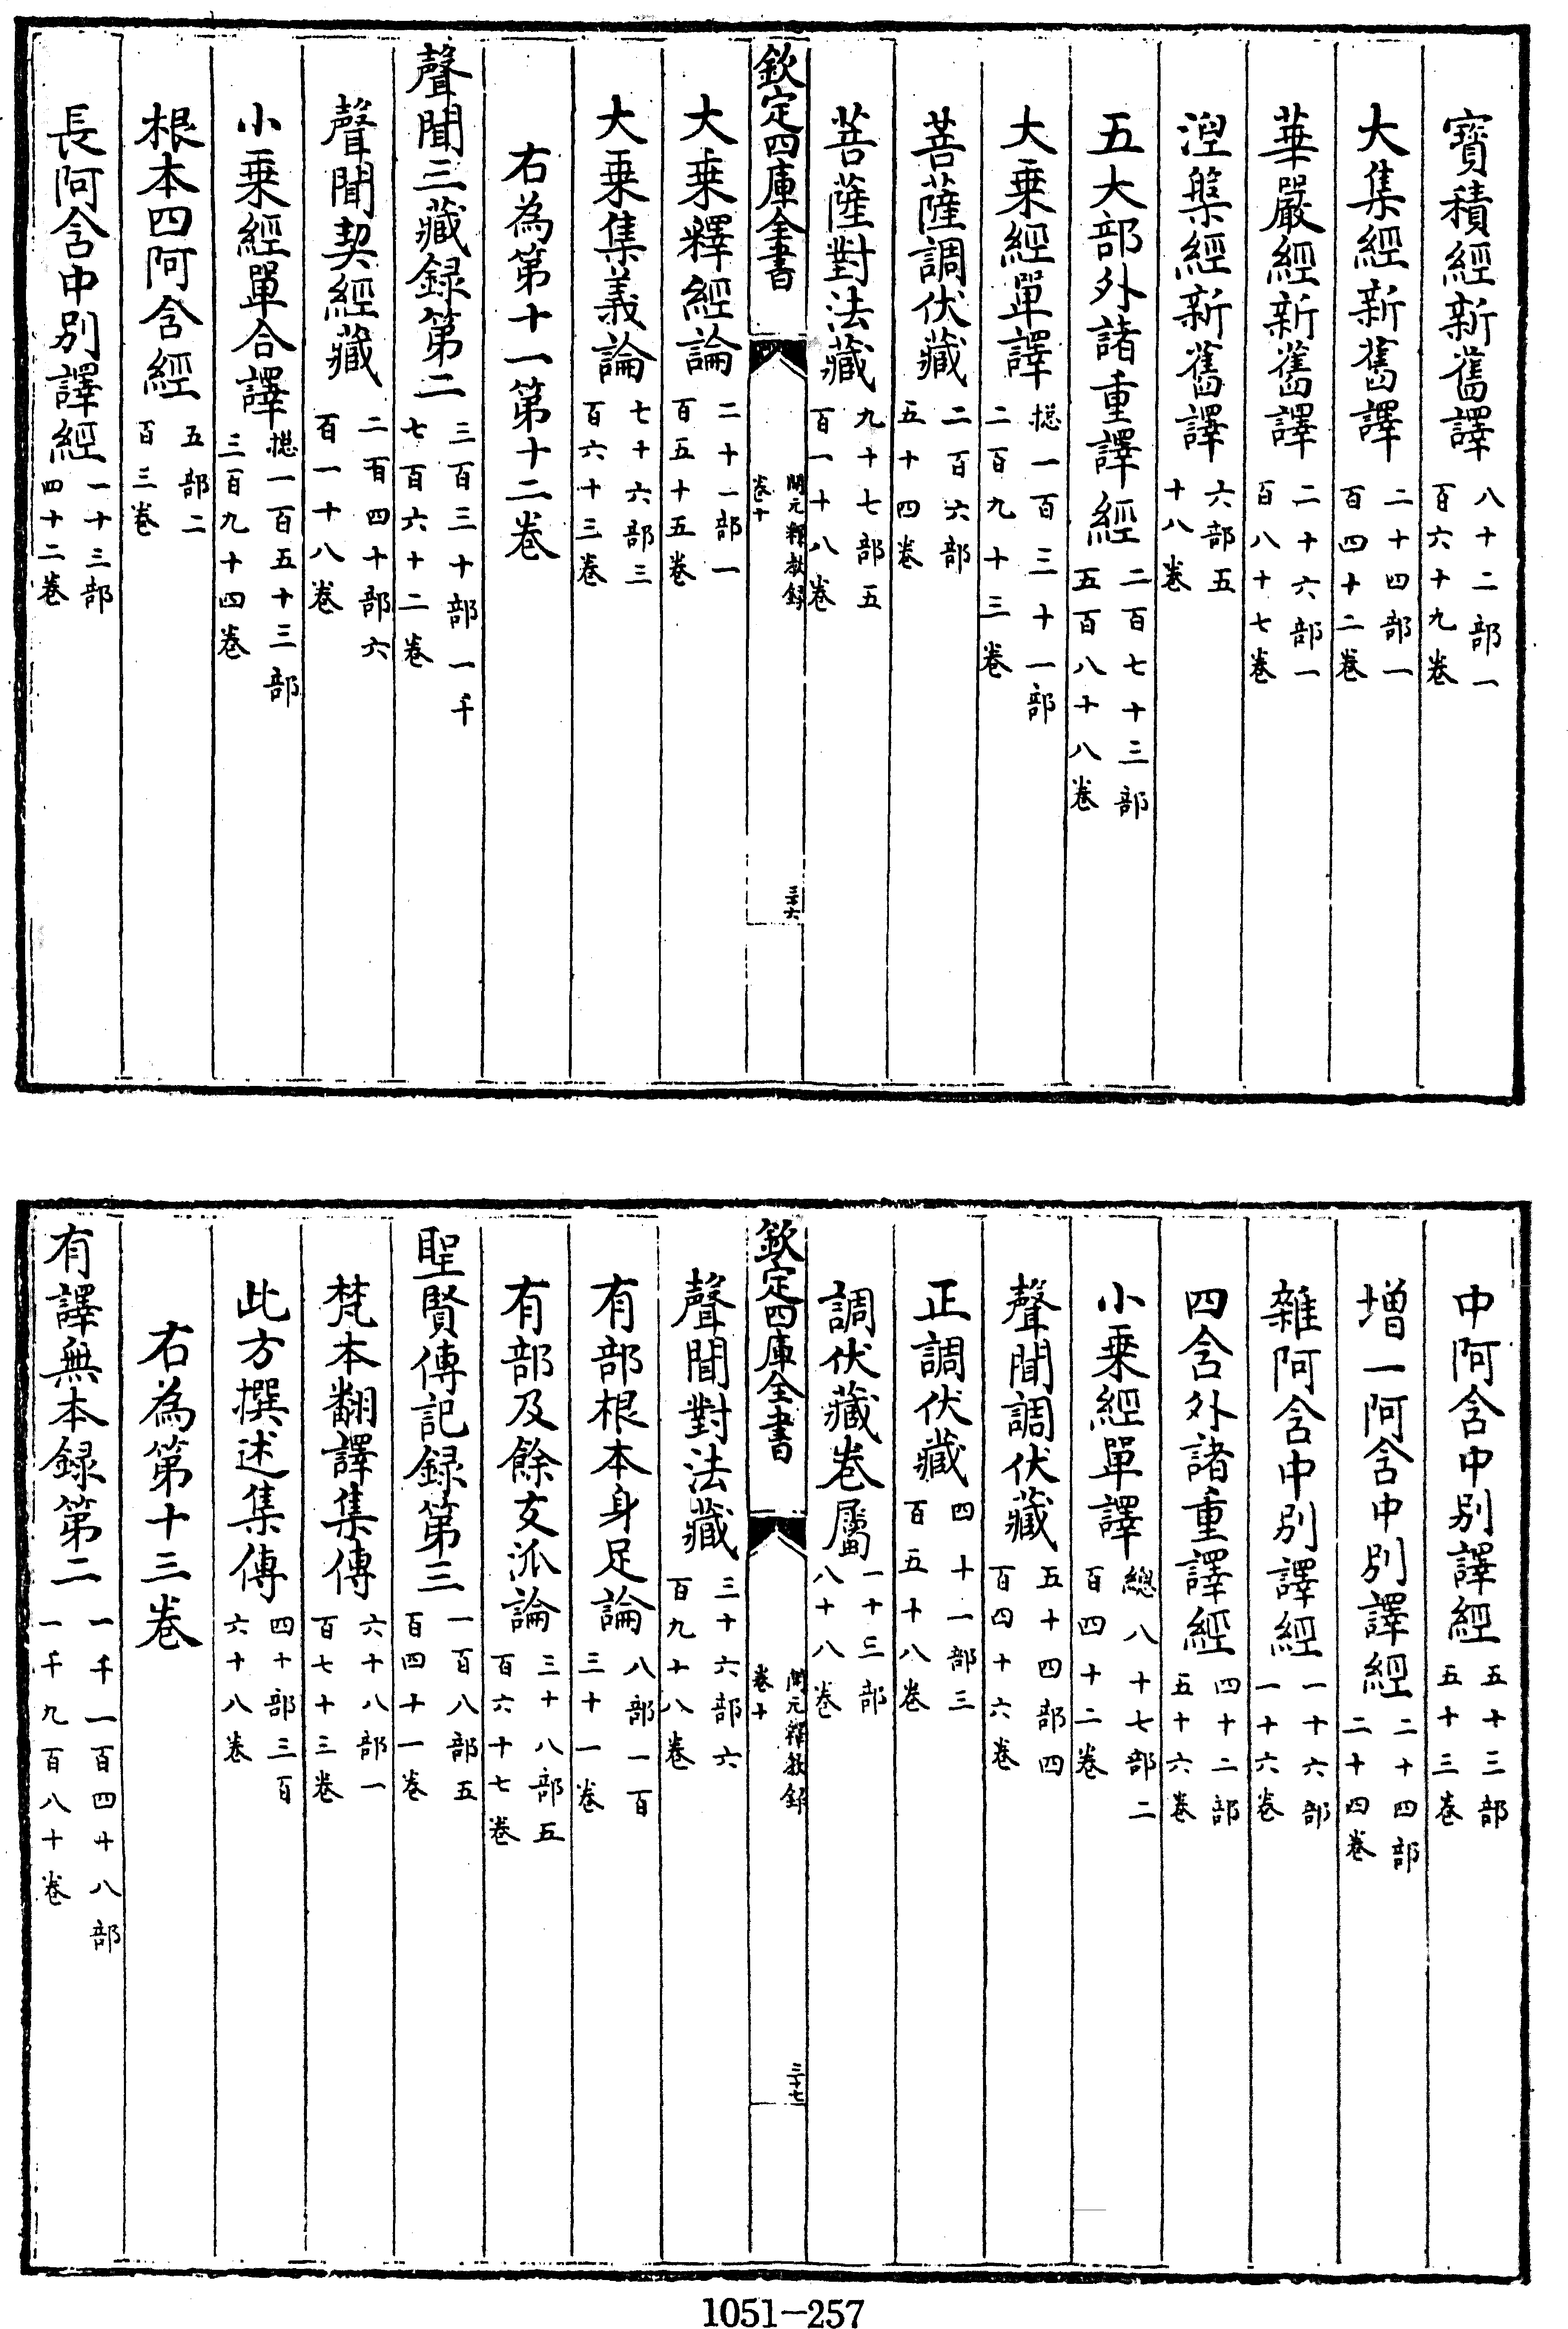 寶積經新舊譯八十二部一百六十九卷
大集經新舊譯二十四部一百四十二卷
華嚴經新舊譯二十六部一百八十七卷
涅槃經新舊譯六部五十八卷
五大部外諸重譯經二百七十三部五百八十八卷
大乗經單譯摠一百三十一部二百九十三卷
菩薩調伏藏二百六部五十四卷
菩薩對法藏九十七部五百一十八卷
欽定四庫全書 開元釋教録卷十 三十六
大乗釋經論二十一部一百五十五卷
大乗集義論七十六部三百六十三卷
右為第十一第十二卷
聲聞三藏録第二三百三十部一千七百六十二卷
聲聞契經藏二百四十部六百一十八卷
小乗經單合譯摠一百五十三部三百九十四卷
根本四阿含經五部二百三卷
長阿含中別譯經一十三部四十二卷
中阿含中別譯經五十三部五十三卷
增一阿含中別譯經二十四部二十四卷
雜阿含中別譯經一十六部一十六卷
四含外諸重譯經四十二部五十六卷
小乗經單譯總八十七部二百四十二卷
聲聞調伏藏五十四部四百四十六卷
正調伏藏四十一部三百五十八卷
調伏藏卷屬一十三部八十八卷
欽定四庫全書 開元釋教録卷十 三十七
聲聞對法藏三十六部六百九十八卷
有部根本身足論八部一百三十一卷
有部及餘支派論三十八部五百六十七卷
聖賢傳記録第三一百八部五百四十一卷
梵本翻譯集傳六十八部一百七十三卷
此方撰述集傳四十部三百六十八卷
右為第十三卷
有譯無本録第二一千一百四十八部一千九百八十卷
1051-257